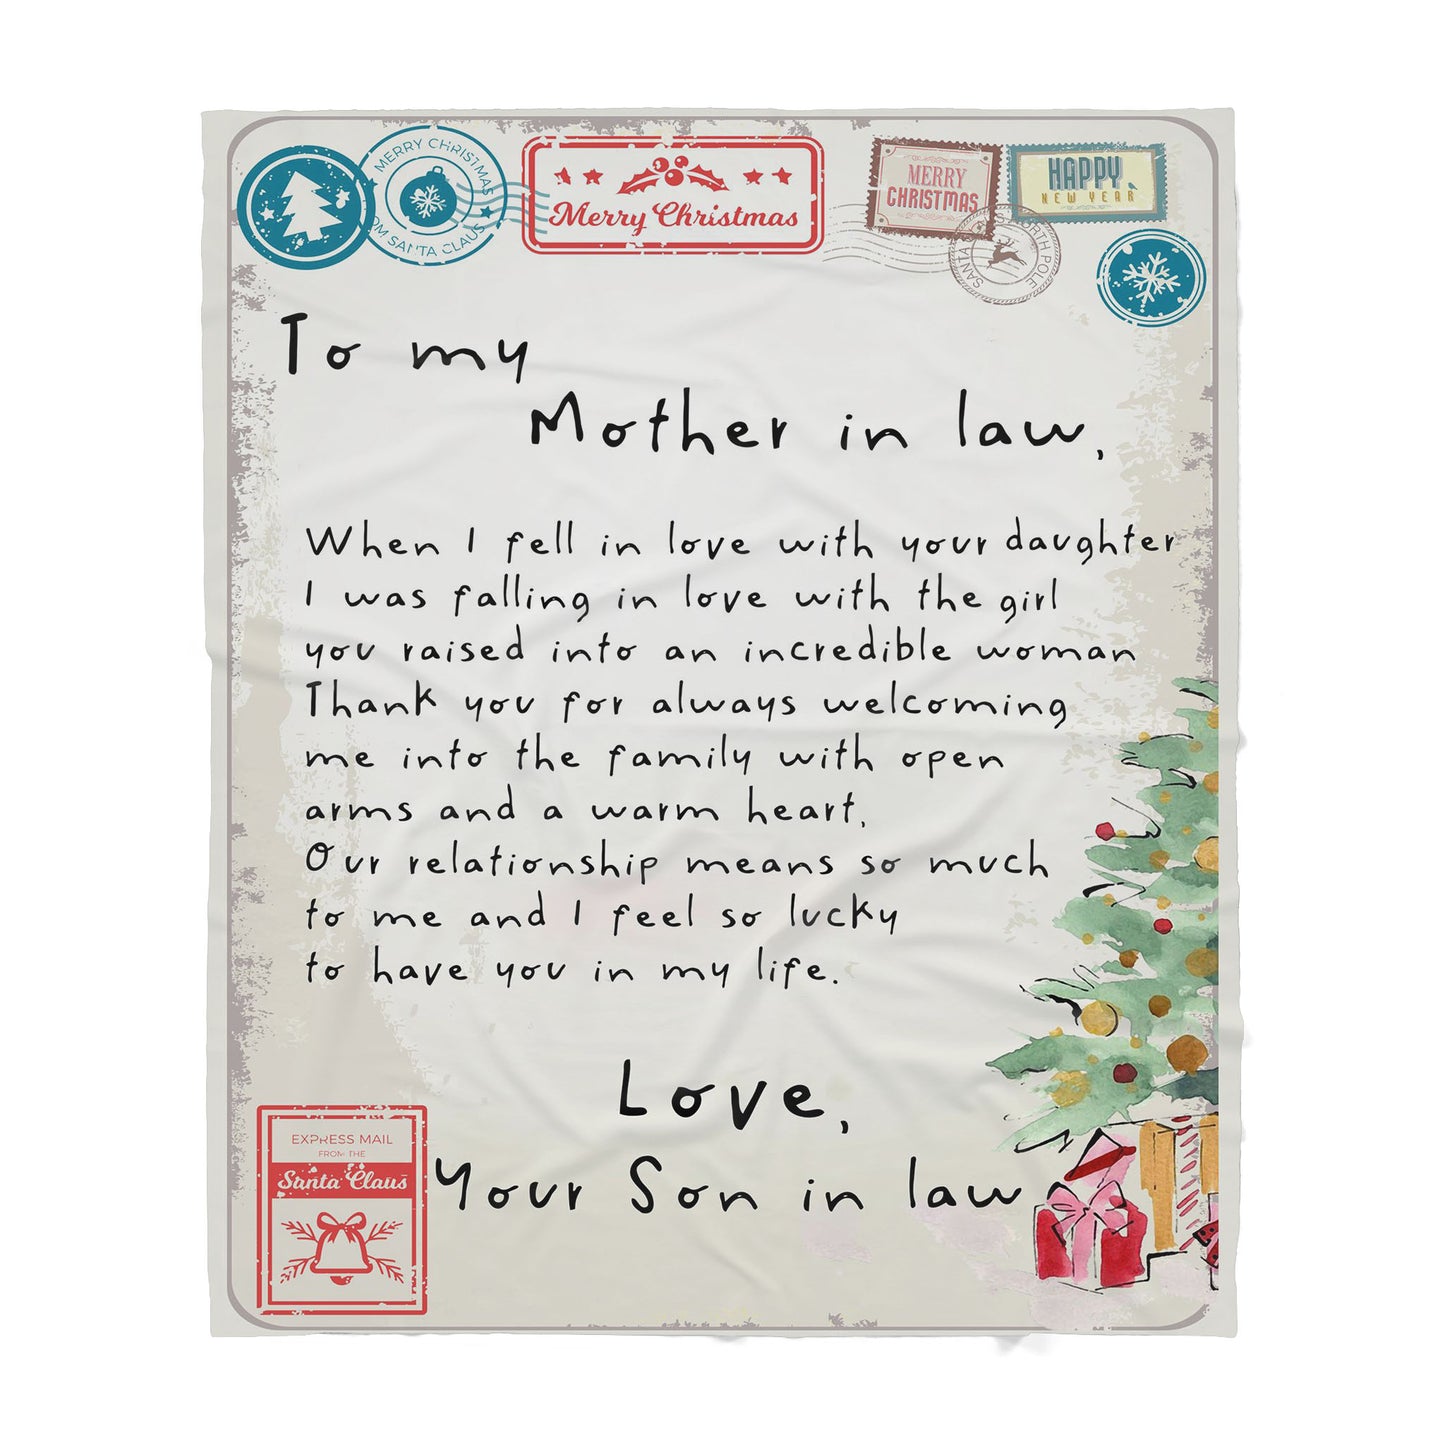 MERRY CHRISTMAS
OM SANTA CLAUS
Merry Christmas
MERRY
CHRISTMAS
HAPPY
NEW YEAR
SANTA CLAUS
NORTH POLE
To my
Mother in law,
When I fell in love with your daughter
I was falling in love with the girl
you raised into an incredible woman
Thank you for always welcoming
me into the family with open
arms and a warm heart.
Our relationship means so much
to me and I feel so lucky
to have you in my life.
Love,
Your Son in law
EXPRESS MAIL
FROM THE
Santa Claus